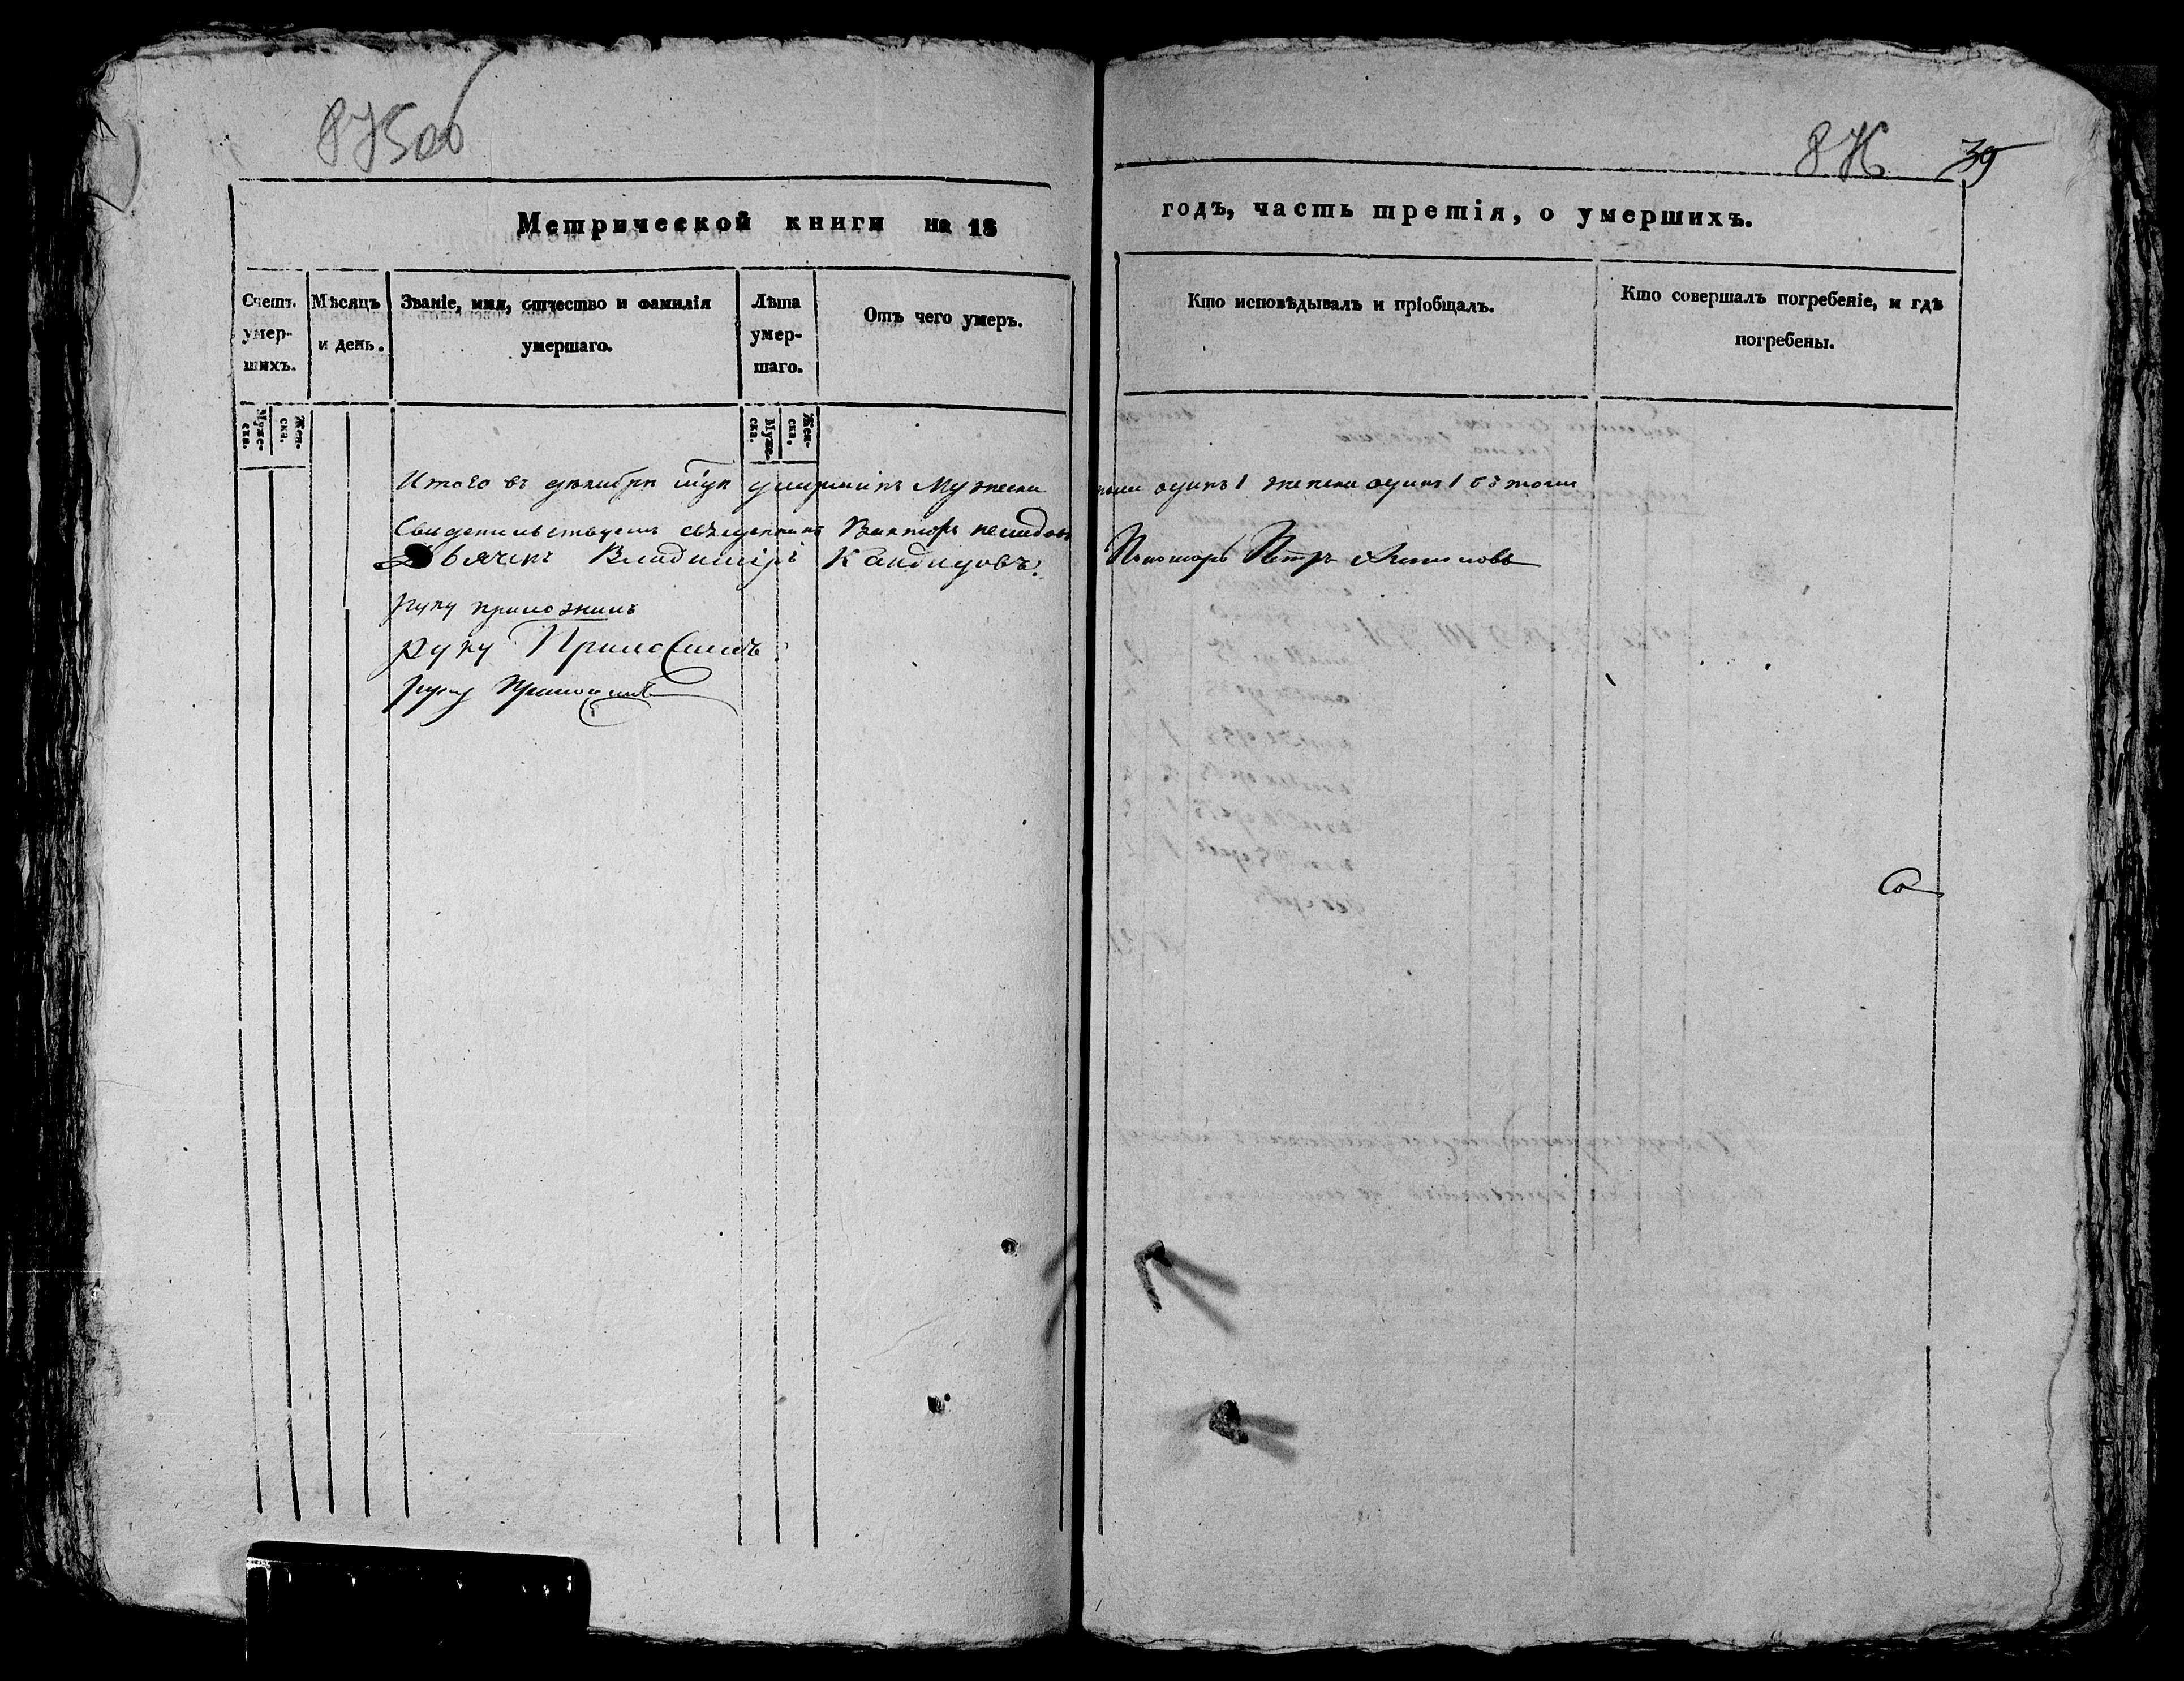 875 об
876 39
Метрической книги на 18 годъ, часть третія, о умершихъ.
Счетъ умер-
шихъ.
Мѣсяцъ
и день.
Званіе, имя, отчество и фамилія
умершаго.
Лѣта
умер-
шаго.
Отъ чего умеръ.
Кто исповѣдывалъ и пріобщалъ.
Кто совершалъ погребеніе, и гдѣ
погребены.
Муже-
ска.
Жен-
ска.
Муже-
ска.
Жен-
ска.
Итого въ декабрѣ умершихъ Мужеска одинъ 1 женска одинъ 1 въ томъ
Свидетельствуемъ священникъ Викторъ
Дьячекъ Владимиръ Кандидовъ. Пономарь Петръ
руку приложилъ
руку Приложилъ
руку Приложилъ